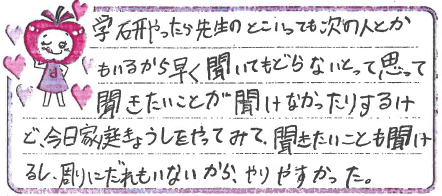 学研やったら先生のとこいっても次の人とか
もいるから早く聞いてもどらないとって思って
聞きたいことが聞けなかったりするけ
ど、今日家庭きょうしをやってみて、聞きたいことも聞け
るし、周りにだれもいないから、やりやすかった。